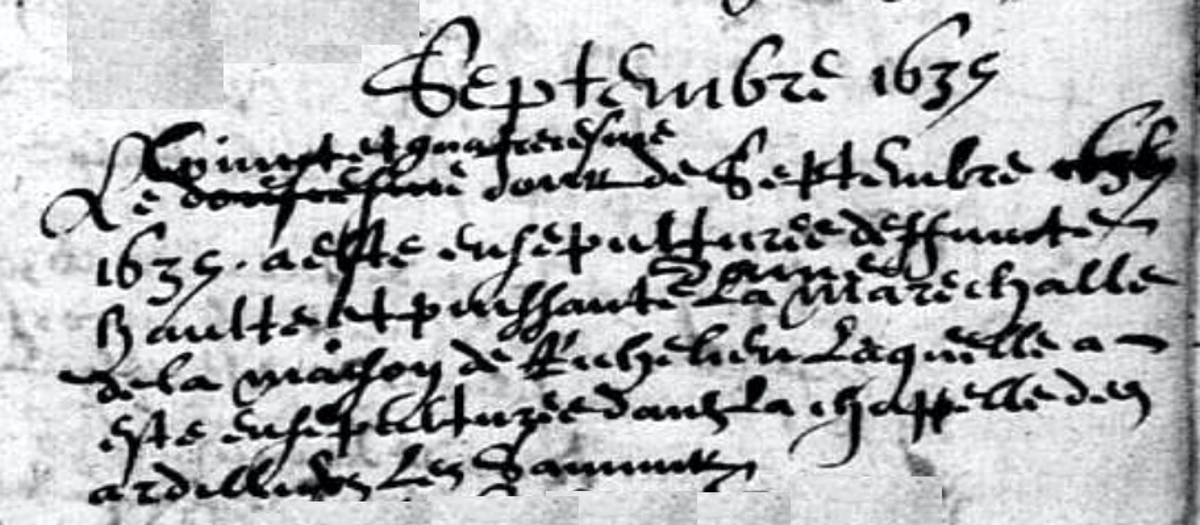 Septembre 1635
vingt et quatreiesme
Le douschesme Jour de Septembre 1635
1635. a este ensepulturee deffuncte
haulte et puissante dame La Marechalle
de la maison de Richelieu Laquelle a
este ensepulturee dans La chappelle des
ardilliers Les Saumur